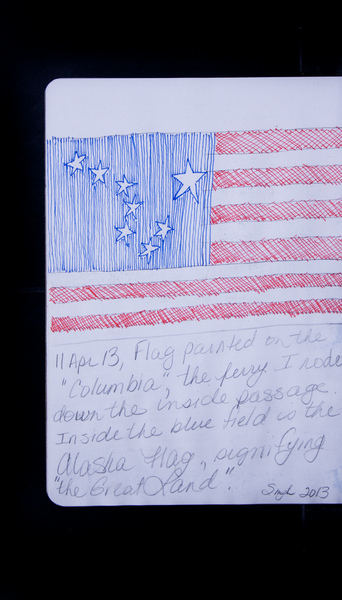 11 Apr 13, Flag painted on the
"Columbia", the ferry I rode
down the inside passage.
Inside the blue field is the
Alaska Flag, signifying
"the Great Land".
2013